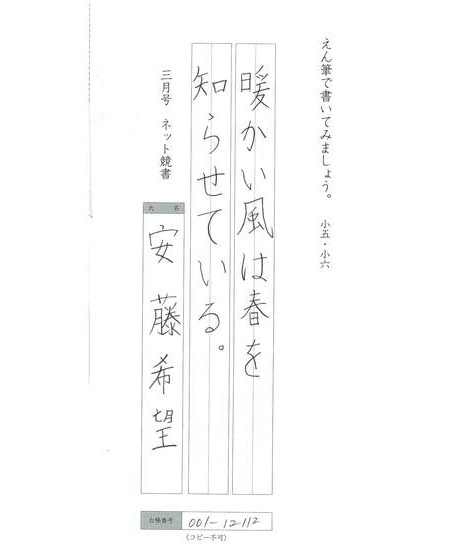 えん筆で書いてみましょう。 小五・小六
暖かい風は春を
知らせている。
三月号 ネット競書
氏名
安藤希望
台帳番号 001-12112
(コピー不可)